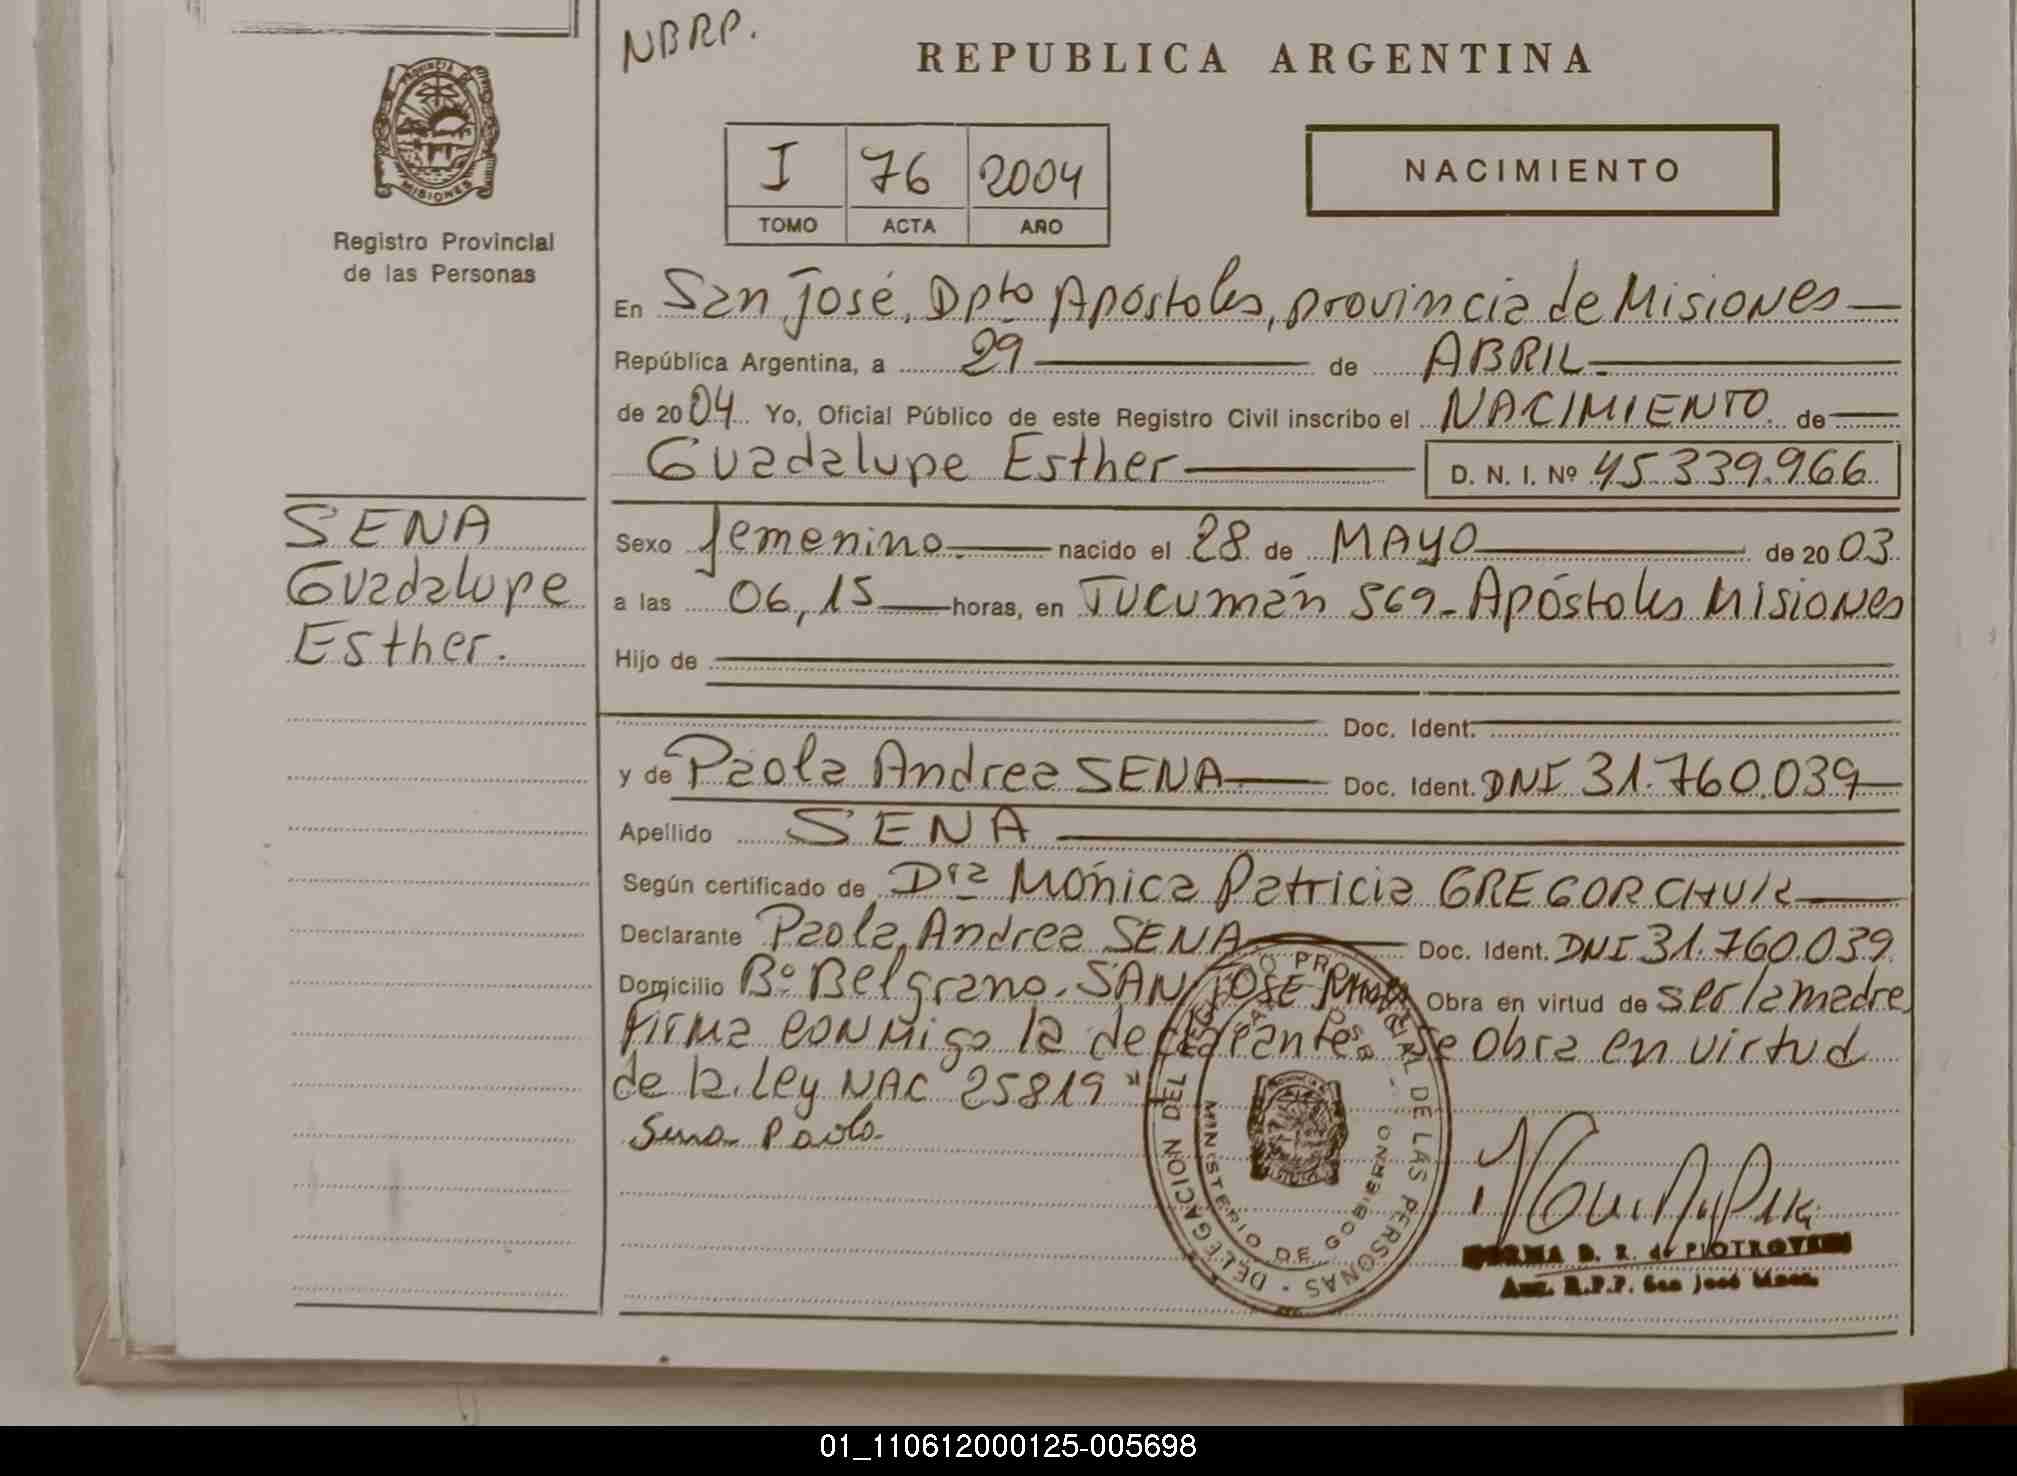 NBRP.
REPUBLICA ARGENTINA
PROVINCIA DE
MISIONES
Registro Provincial
de las Personas
I 76 2004
TOMO ACTA AÑO
NACIMIENTO
En San José, Dpto Apóstoles, provincia de Misiones
República Argentina, a 29 de ABRIL
de 2004 Yo, Oficial Público de este Registro Civil inscribo el NACIMIENTO de
Guadalupe Esther D. N. I. Nº 45.339.966
SENA
Guadalupe
Esther.
Sexo femenino. nacido el 28 de MAYO de 2003
a las 06,15 horas, en Tucumán 569- Apóstoles Misiones
Hijo de
Doc. Ident.
y de Paola Andrea SENA Doc. Ident. DNI 31.760.039
Apellido SENA
Según certificado de Dra Mónica Patricia GREGORCHUK
Declarante Paola Andrea SENA Doc. Ident. DNI 31.760.039
Domicilio Bº Belgrano. SAN JOSE Obra en virtud de ser la madre
Firma conmigo la declarante Se obra en virtud
de la Ley NAC 25819"
Sena Paola
DELEGACION DEL REGISTRO PROVINCIAL DE LAS PERSONAS
SAN JOSE
MINISTERIO DE GOBIERNO
NORMA B. R. de PIOTROVSKI
Aux. R.P.P. San José Mnes.
01_110612000125-005698